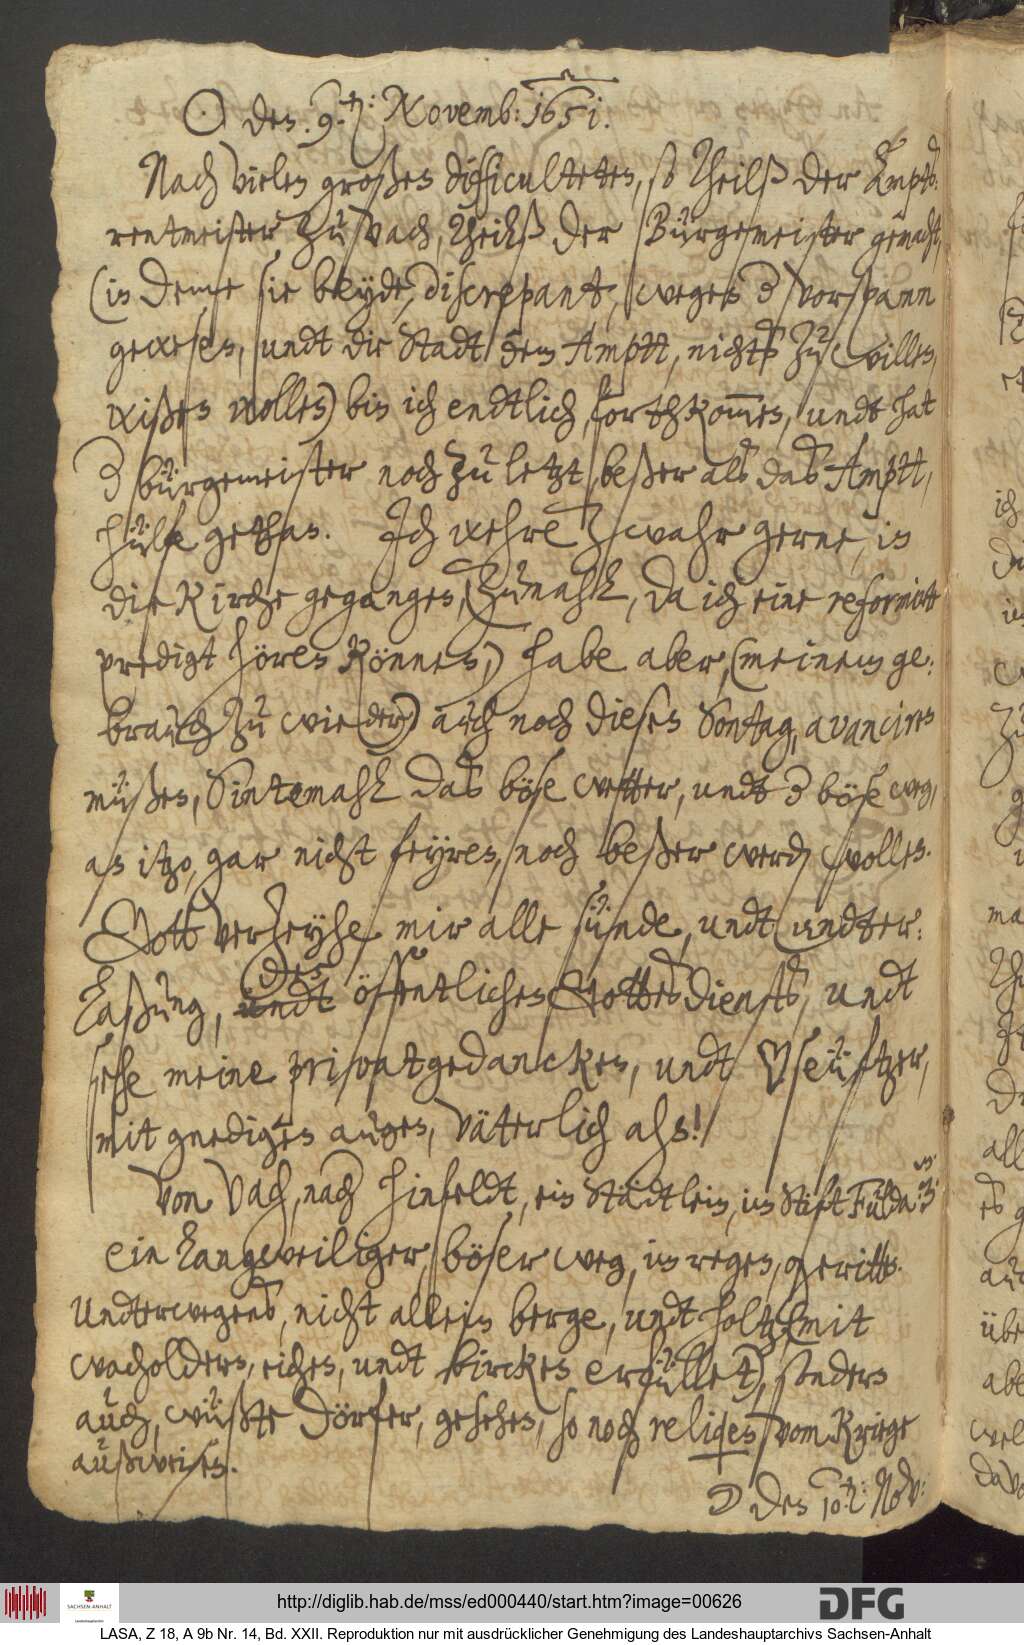 ☉ den: 9.ten: Novemb: 1651.
Nach vielen großen difficulteten, so theilß der Ampts:
rentmeister zu Vach, theilß der Bürgemeister gemacht,
(in deme sie beyde, discrepant, wegen der vorspann
gewesen, undt die Stadt dem Amptt, nichts zu willen,
wißen wollen) bin ich endtlich, forthkom̄en, undt hat
der bürgemeister noch zu letzt beßer als das Amptt,
hülfe gethan. Ich wehre zwahr gerne, in
die Kirche gegangen, (zumahl, da ich eine reformirte
predigt hören können,) habe aber, (meinem ge:
brauch zu wieder) auch noch diesen Sontag, avanciren
müßen, Sintemahl das böse wetter, undt der böse weg,
an itzo, gar nicht feyren, noch beßer werden wollen.
Gott verzeyhe mir alle sünde, undt undter:
laßung, undt den öffentlichen Gottesdiensts, undt
sehe meine privatgedancken, undt ♡seüftzer,
mit gnedigen augen, väterlich ahn!
Von Vach, nach Hinfeldt, ein Städtlein, im Stift Fulda: 3 m
ein langweiliger, böser weg, im regen, geritten.
Undterwegens, nicht allein berge, undt holtz, (mit
wacholdern, eichen, undt bircken erfüllet) sondern
auch, wüßte Dörfer, gesehen, so noch reliqen vom Kriege
außweisen.
☽ den 10.ten: Nov:
http://diglib.hab.de/mss/ed000440/start.htm?image=00626
SACHSEN-ANHALT
DFG
LASA, Z 18, A 9b Nr. 14, Bd. XXII. Reproduktion nur mit ausdrücklicher Genehmigung des Landeshauptarchivs Sachsen-Anhalt